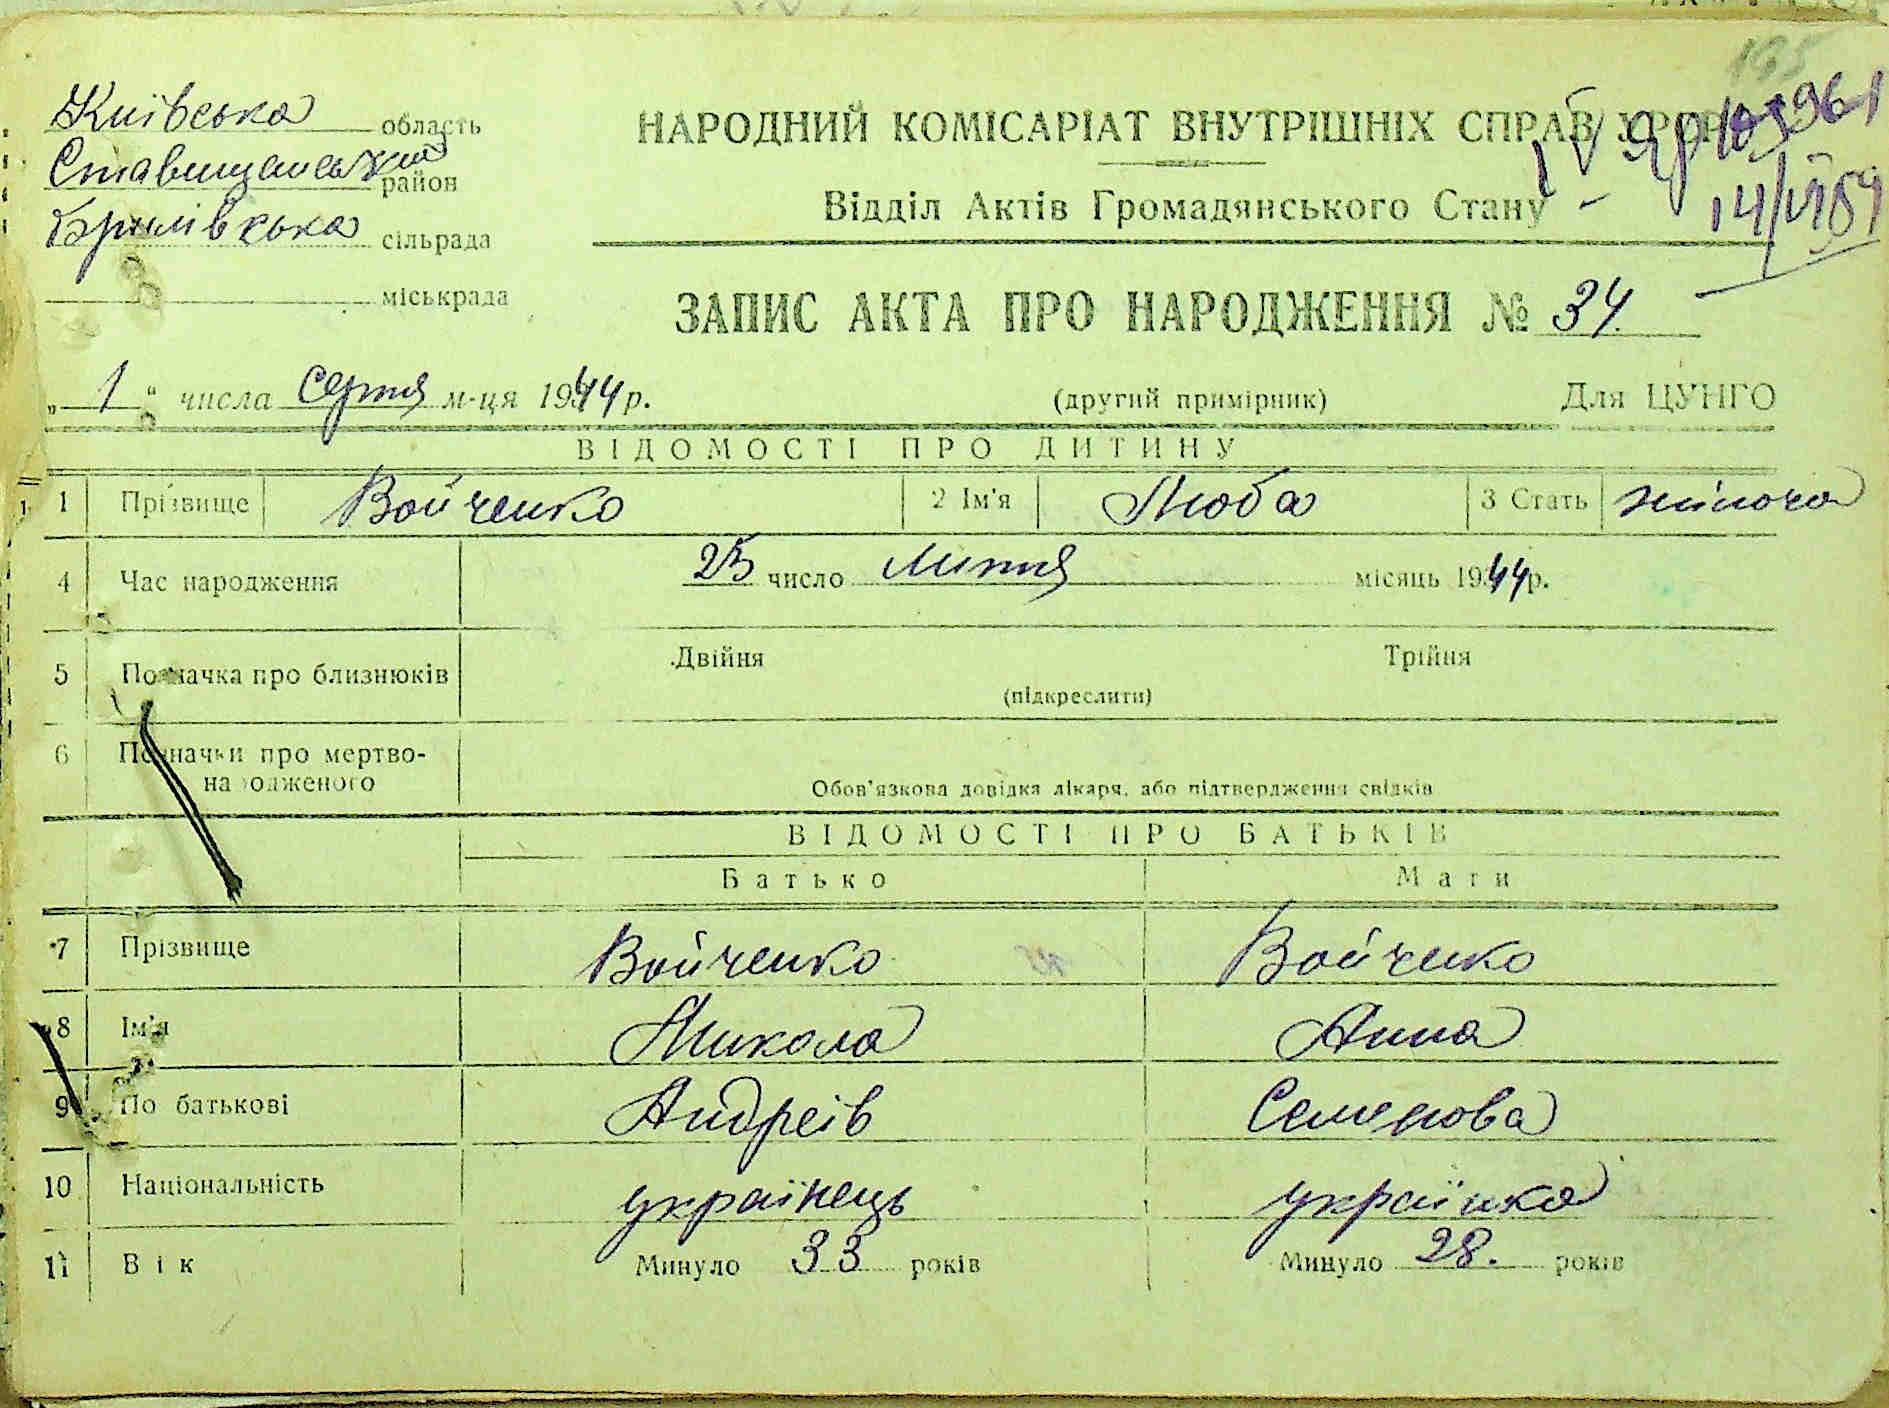 195
Київська область
Ставищанський район
Брилівкська сільрада
міськрада
НАРОДНИЙ КОМІСАРІАТ ВНУТРІШНІХ СПРАВ УРСР
Відділ Актів Громадянського Стану
14/VII 59
ЗАПИС АКТА ПРО НАРОДЖЕННЯ № 34.
„ 1 “ числа Серпня м-ця 1944 р.
(другий примірник)
Для ЦУНГО
ВІДОМОСТІ ПРО ДИТИНУ
1 Прізвище Войченко 2 Ім'я Люба 3 Стать жіноча
4 Час народження 25 число Липня місяць 1944 р.
5 Позначка про близнюків Двійня Трійня
(підкреслити)
6 Позначки про мертво-
народженого
Обов'язкова довідка лікаря, або підтвердження свідків
ВІДОМОСТІ ПРО БАТЬКІВ
Батько Мати
7 Прізвище Войченко Войченко
8 Ім'я Микола Анна
9 По батькові Андреїв Семенова
10 Національність українець українка
11 Вік Минуло 33 років Минуло 28. років